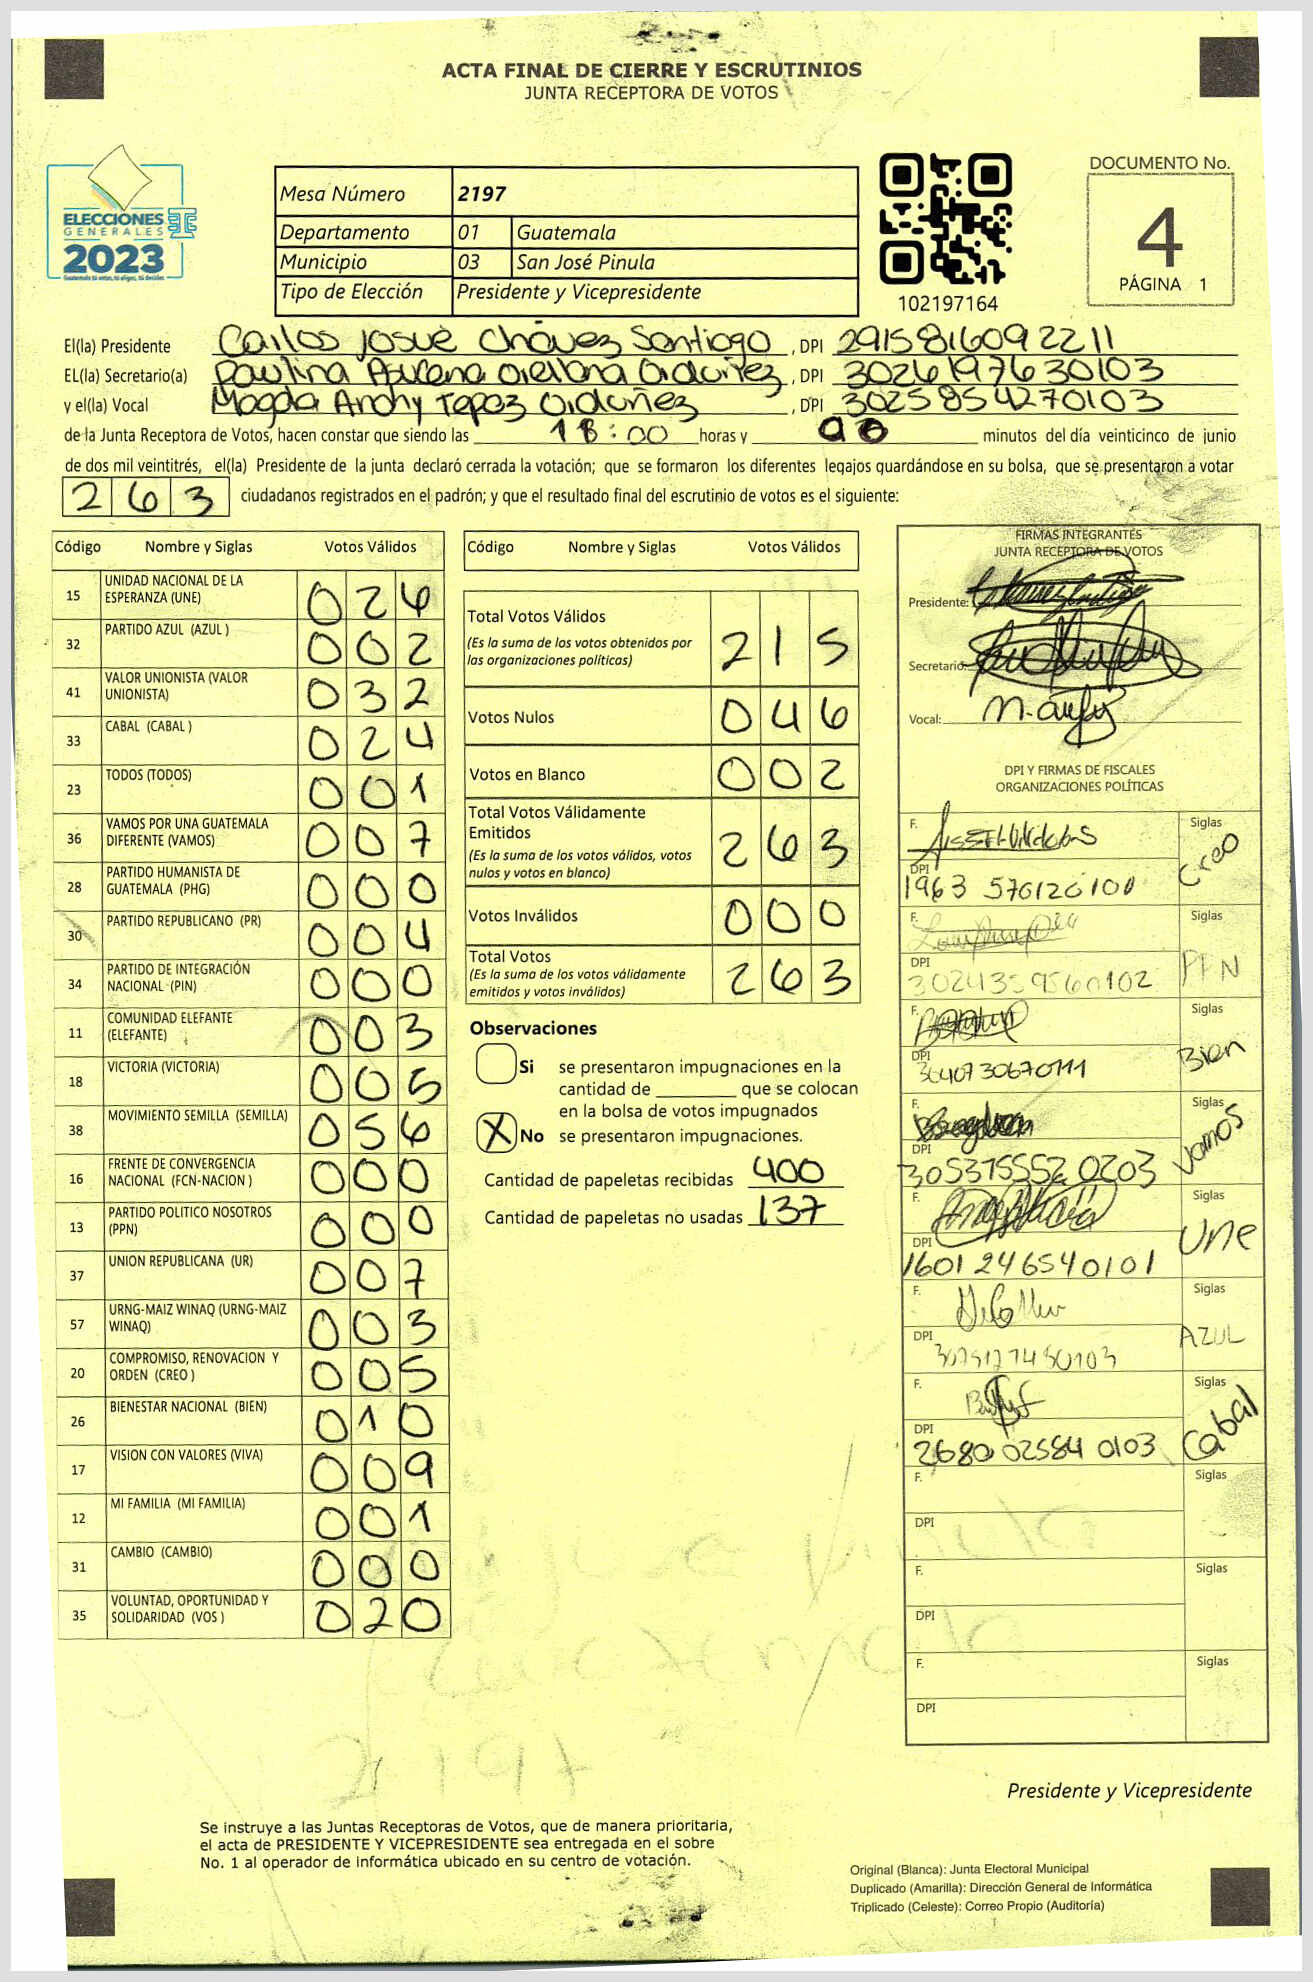 ACTA FINAL DE CIERRE Y ESCRUTINIOS
JUNTA RECEPTORA DE VOTOS
ELECCIONES
GENERALES
2023
Mesa Número 2197
Departamento 01 Guatemala
Municipio 03 San José Pinula
Tipo de Elección Presidente y Vicepresidente
102197164
DOCUMENTO No.
4
PÁGINA 1
El(la) Presidente Carlos Josué Chávez Santiago , DPI 2915816092211
EL(la) Secretario(a) Paulina Azucena Orellana Ordoñez , DPI 3026197630103
y el(la) Vocal Magda Anahy Tepez Ordoñez , DPI 3025854270103
de la Junta Receptora de Votos, hacen constar que siendo las 18:00 horas y 00 minutos del día veinticinco de junio
de dos mil veintitrés, el(la) Presidente de la junta declaró cerrada la votación; que se formaron los diferentes legajos guardándose en su bolsa, que se presentaron a votar
263 ciudadanos registrados en el padrón; y que el resultado final del escrutinio de votos es el siguiente:
Código Nombre y Siglas Votos Válidos
15 UNIDAD NACIONAL DE LA ESPERANZA (UNE) 026
32 PARTIDO AZUL (AZUL ) 002
41 VALOR UNIONISTA (VALOR UNIONISTA) 032
33 CABAL (CABAL ) 024
23 TODOS (TODOS) 001
36 VAMOS POR UNA GUATEMALA DIFERENTE (VAMOS) 007
28 PARTIDO HUMANISTA DE GUATEMALA (PHG) 000
30 PARTIDO REPUBLICANO (PR) 004
34 PARTIDO DE INTEGRACIÓN NACIONAL (PIN) 000
11 COMUNIDAD ELEFANTE (ELEFANTE) 003
18 VICTORIA (VICTORIA) 005
38 MOVIMIENTO SEMILLA (SEMILLA) 056
16 FRENTE DE CONVERGENCIA NACIONAL (FCN-NACION ) 000
13 PARTIDO POLITICO NOSOTROS (PPN) 000
37 UNION REPUBLICANA (UR) 007
57 URNG-MAIZ WINAQ (URNG-MAIZ WINAQ) 003
20 COMPROMISO, RENOVACION Y ORDEN (CREO ) 005
26 BIENESTAR NACIONAL (BIEN) 010
17 VISION CON VALORES (VIVA) 009
12 MI FAMILIA (MI FAMILIA) 001
31 CAMBIO (CAMBIO) 000
35 VOLUNTAD, OPORTUNIDAD Y SOLIDARIDAD (VOS ) 020
Código Nombre y Siglas Votos Válidos
Total Votos Válidos 215
(Es la suma de los votos obtenidos por
las organizaciones políticas)
Votos Nulos 046
Votos en Blanco 002
Total Votos Válidamente
Emitidos 263
(Es la suma de los votos válidos, votos
nulos y votos en blanco)
Votos Inválidos 000
Total Votos 263
(Es la suma de los votos válidamente
emitidos y votos inválidos)
Observaciones
Si se presentaron impugnaciones en la
cantidad de ________ que se colocan
en la bolsa de votos impugnados
X No se presentaron impugnaciones.
Cantidad de papeletas recibidas 400
Cantidad de papeletas no usadas 137
FIRMAS INTEGRANTES
JUNTA RECEPTORA DE VOTOS
Presidente:
Secretario:
Vocal:
DPI Y FIRMAS DE FISCALES
ORGANIZACIONES POLÍTICAS
F. Siglas Creo
DPI 1963 576120100
F. Siglas PPN
DPI 3024359560102
F. Siglas Bien
DPI 3040730670111
F. Siglas Vamos
DPI 305375552 0203
F. Siglas Une
DPI 1601246540101
F. Siglas AZUL
DPI
F. Siglas Cabal
DPI 2680 02584 0103
F. Siglas
DPI
F. Siglas
DPI
F. Siglas
DPI
2197
Presidente y Vicepresidente
Se instruye a las Juntas Receptoras de Votos, que de manera prioritaria,
el acta de PRESIDENTE Y VICEPRESIDENTE sea entregada en el sobre
No. 1 al operador de informática ubicado en su centro de votación.
Original (Blanca): Junta Electoral Municipal
Duplicado (Amarilla): Dirección General de Informática
Triplicado (Celeste): Correo Propio (Auditoría)